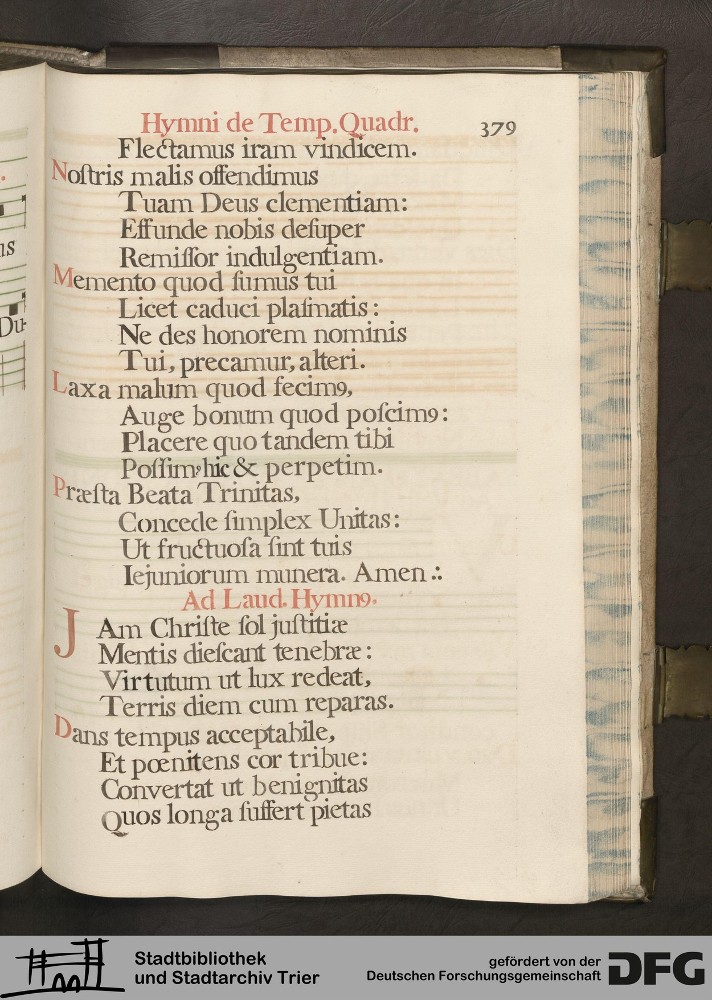 Hymni de Temp. Quadr. 379
Flectamus iram vindicem.
Noſtris malis offendimus
Tuam Deus clementiam:
Effunde nobis deſuper
Remiſſor indulgentiam.
Memento quod ſumus tui
Licet caduci plaſmatis:
Ne des honorem nominis
Tui, precamur, alteri.
Laxa malum quod fecimꝰ,
Auge bonum quod poſcimꝰ:
Placere quo tandem tibi
Poſſimꝰ hic & perpetim.
Præſta Beata Trinitas,
Concede ſimplex Unitas:
Ut fructuoſa ſint tuis
Iejuniorum munera. Amen :.
Ad Laud. Hymnꝰ.
JAm Chriſte ſol juſtitiæ
Mentis dieſcant tenebræ:
Virtutum ut lux redeat,
Terris diem cum reparas.
Dans tempus acceptabile,
Et pœnitens cor tribue:
Convertat ut benignitas
Quos longa ſuffert pietas
Stadtbibliothek
und Stadtarchiv Trier
gefördert von der
Deutschen Forschungsgemeinschaft
DFG